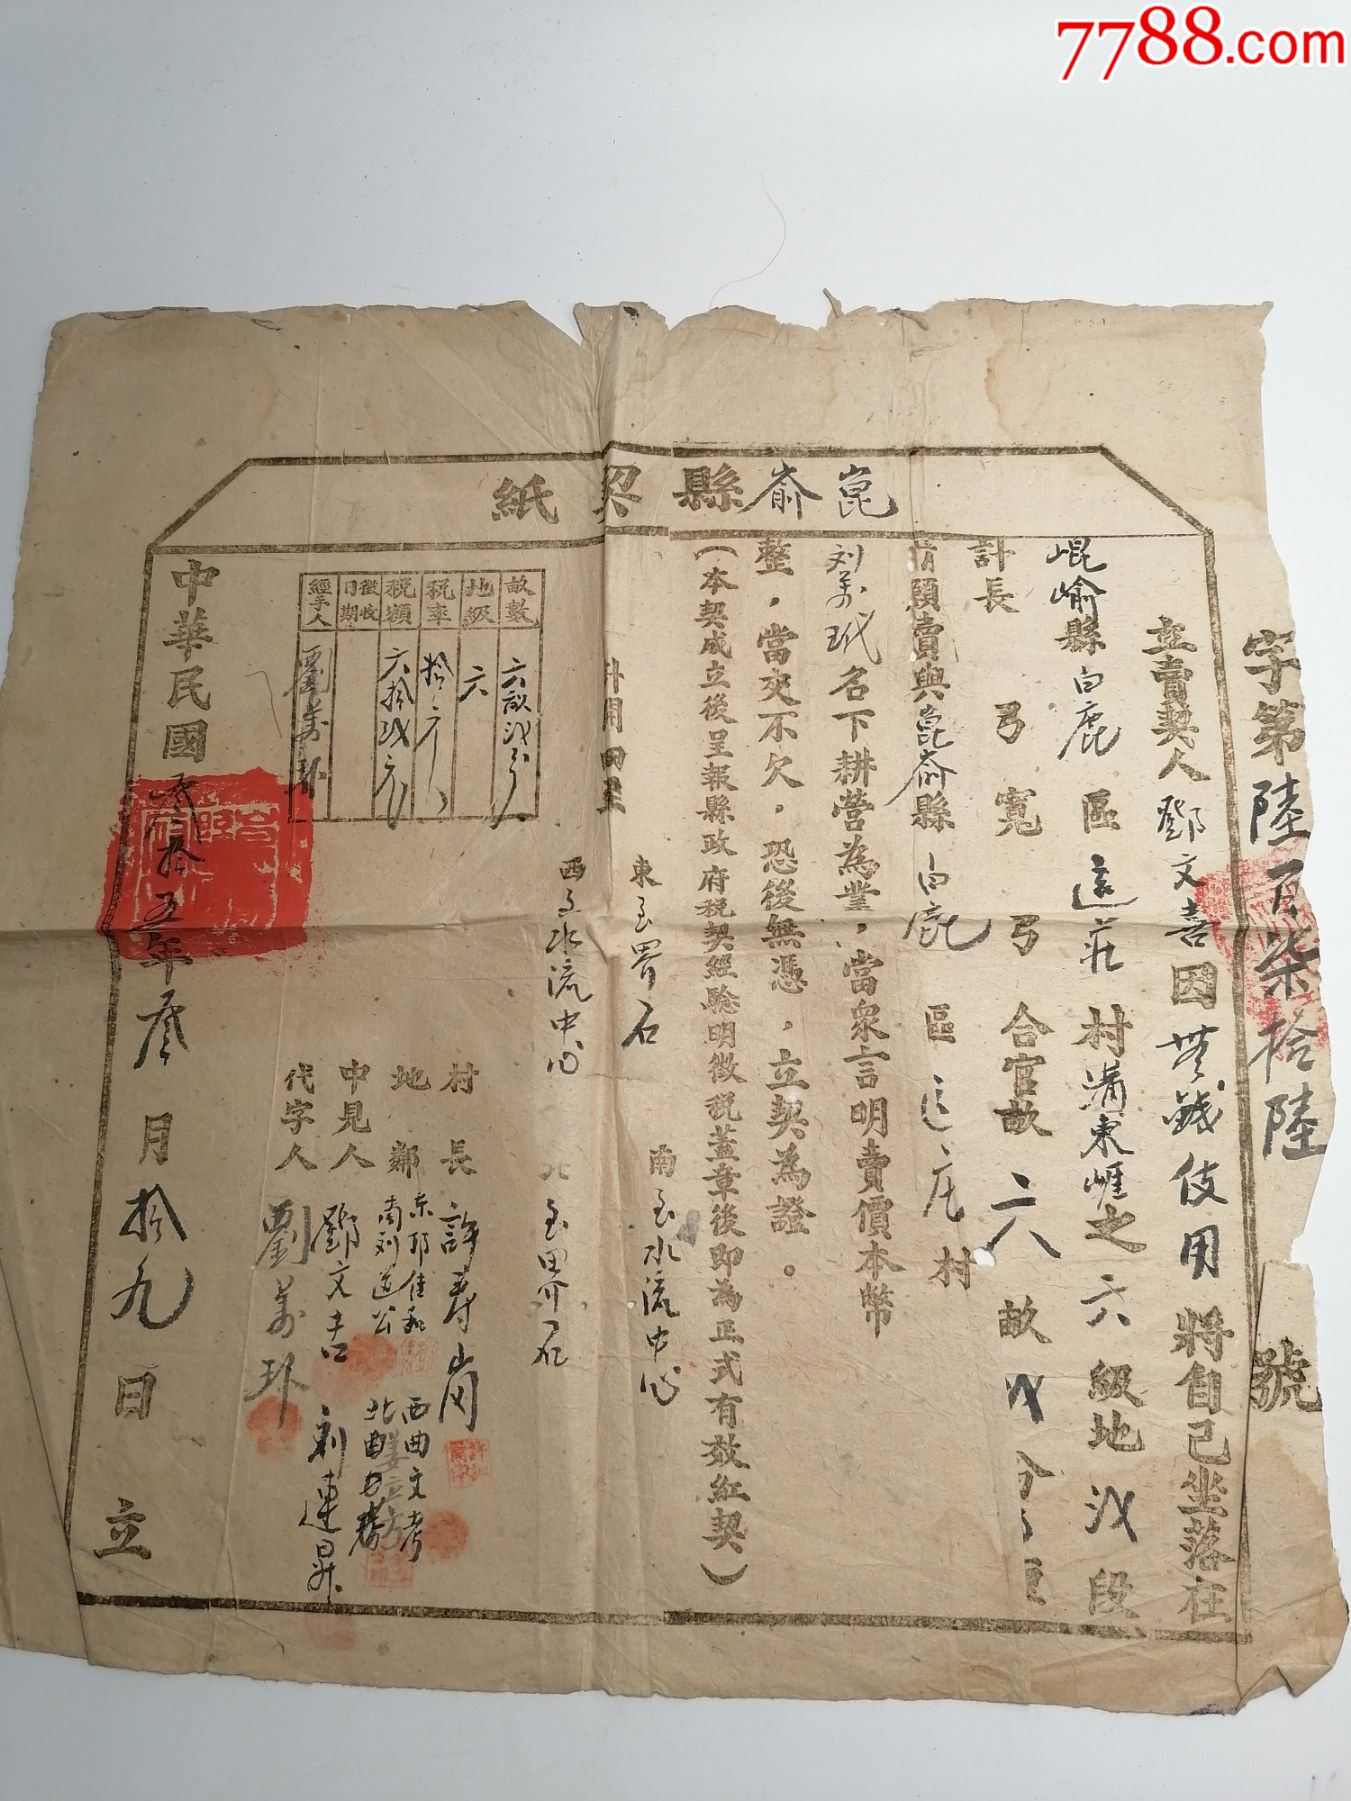 7788.com
崑嵛縣契紙
字第陸百柒拾陸號
立賣契人鄧文喜因無錢使用將自己坐落在
崐嵛縣白鹿區這莊村溝東崕之六級地弍段
計長弓寬弓合官畝六畝弍分
情願賣與崑嵛縣白鹿區這庄村
刘萬珷名下耕營為業，當衆言明賣價本幣
整，當交不欠，恐後無憑，立契為證。
（本契成立後呈報縣政府税契經驗明徵税蓋章後即為正式有效紅契）
東至界石 南至水流中心
西至水流中心 北至界石
畝數 六畝弍分
地級 六
税率 拾元
税額 六拾弍元
徵收日期
經手人 劉萬
村長 許壽崗
地鄰 東邹佳和 西曲文考
南刘道公
中見人 鄧文吉 刘連昇
代字人 劉萬
中華民國弍拾五年叁月拾九日立